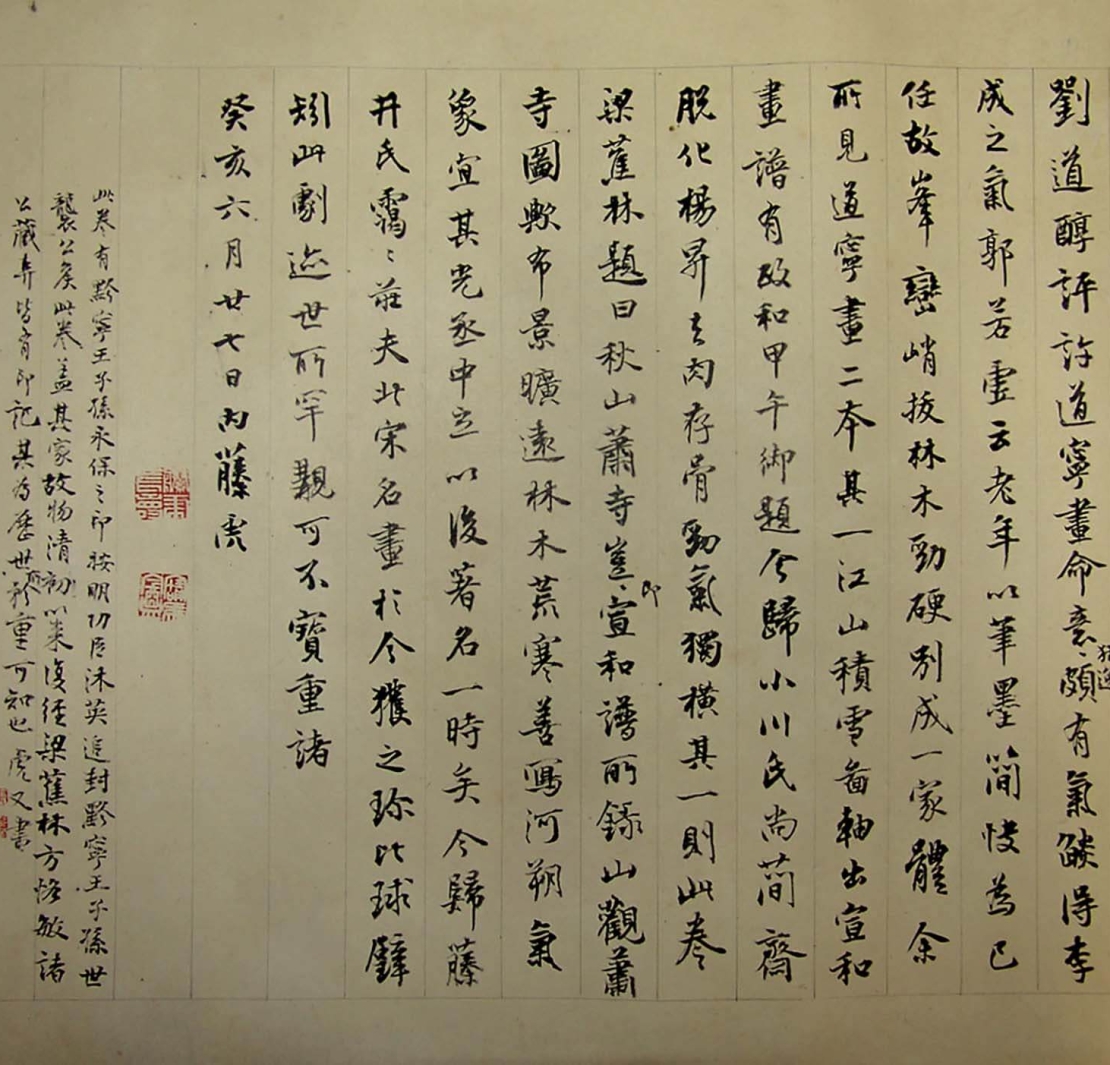 劉道醇評許道寧畫命意狷逸頗有氣燄得李
成之氣郭若虛云老年以筆墨簡快為己
任故峯巒峭拔林木勁硬別成一家體余
所見道寧畫二本其一江山積雪啚軸出宣和
畫譜有政和甲午御題今歸小川氏尚簡齋
脫化楊昇去肉存骨勁氣獨橫其一則此卷
梁蕉林題曰秋山蕭寺豈即宣和譜所錄山觀蕭
寺圖歟布景曠遠林木荒寒善寫河朔氣
象宜其光丞中立以後著名一時矣今歸藤
井氏靄々莊夫北宋名畫於今獲之珍比球璧
矧此劇迹世所罕覯可不寶重諸
癸亥六月廿七日內藤虎
此卷有黔寧王子孫永保之印按明功臣沐英追封黔寧王子孫世
襲公矦此卷蓋其家故物清初以來復經梁蕉林方恪敏諸
公藏弆皆有印記其為歷世所珍重可知也虎又書